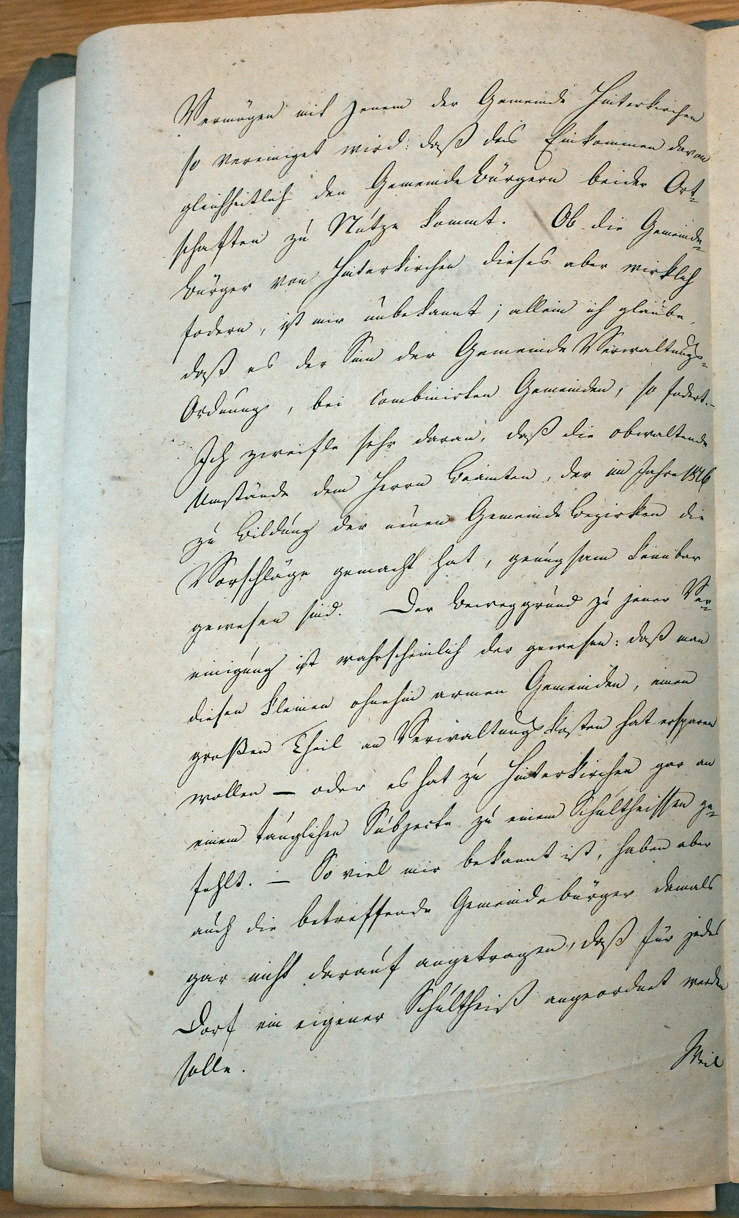 Vermögen mit jenem der Gemeinde Hinterkirchen
so vereiniget wird: daß das Einkommen davon
gleichheitlich den Gemeindebürgern beider Ort-
schaften zu Nutze kommt. Ob die Gemeinde-
bürger von Hinterkirchen dieses aber wirklich
fodern, ist mir unbekannt; allein ich glaube,
daß es der Sinn der Gemeinde Verwaltungs-
Ordnung, bei combinirten Gemeinden, so fodert.-
Ich zweifle sehr daran, daß die obwaltende
Umstände dem Herrn Beamten, der im Jahre 1826
zu Bildung der neuen Gemeinde Bezirken die
Vorschläge gemacht hat, genugsam kennbar
gewesen sind. Der Beweggrund zu jener Ver-
einigung ist wahrscheinlich der gewesen: daß man
diesen kleinen ohnehin armen Gemeinden, einen
großen Theil an Verwaltungskosten hat ersparen
wollen — oder es hat zu Hinterkirchen gar an
einem tauglichen Subjecte zu einem Schultheissen ge-
fehlt. — So viel mir bekannt ist, haben aber
auch die betreffende Gemeindebürger damals
gar nicht darauf angetragen, daß für jedes
Dorf ein eigener Schultheiß angeordnet werden
solle.
Weil